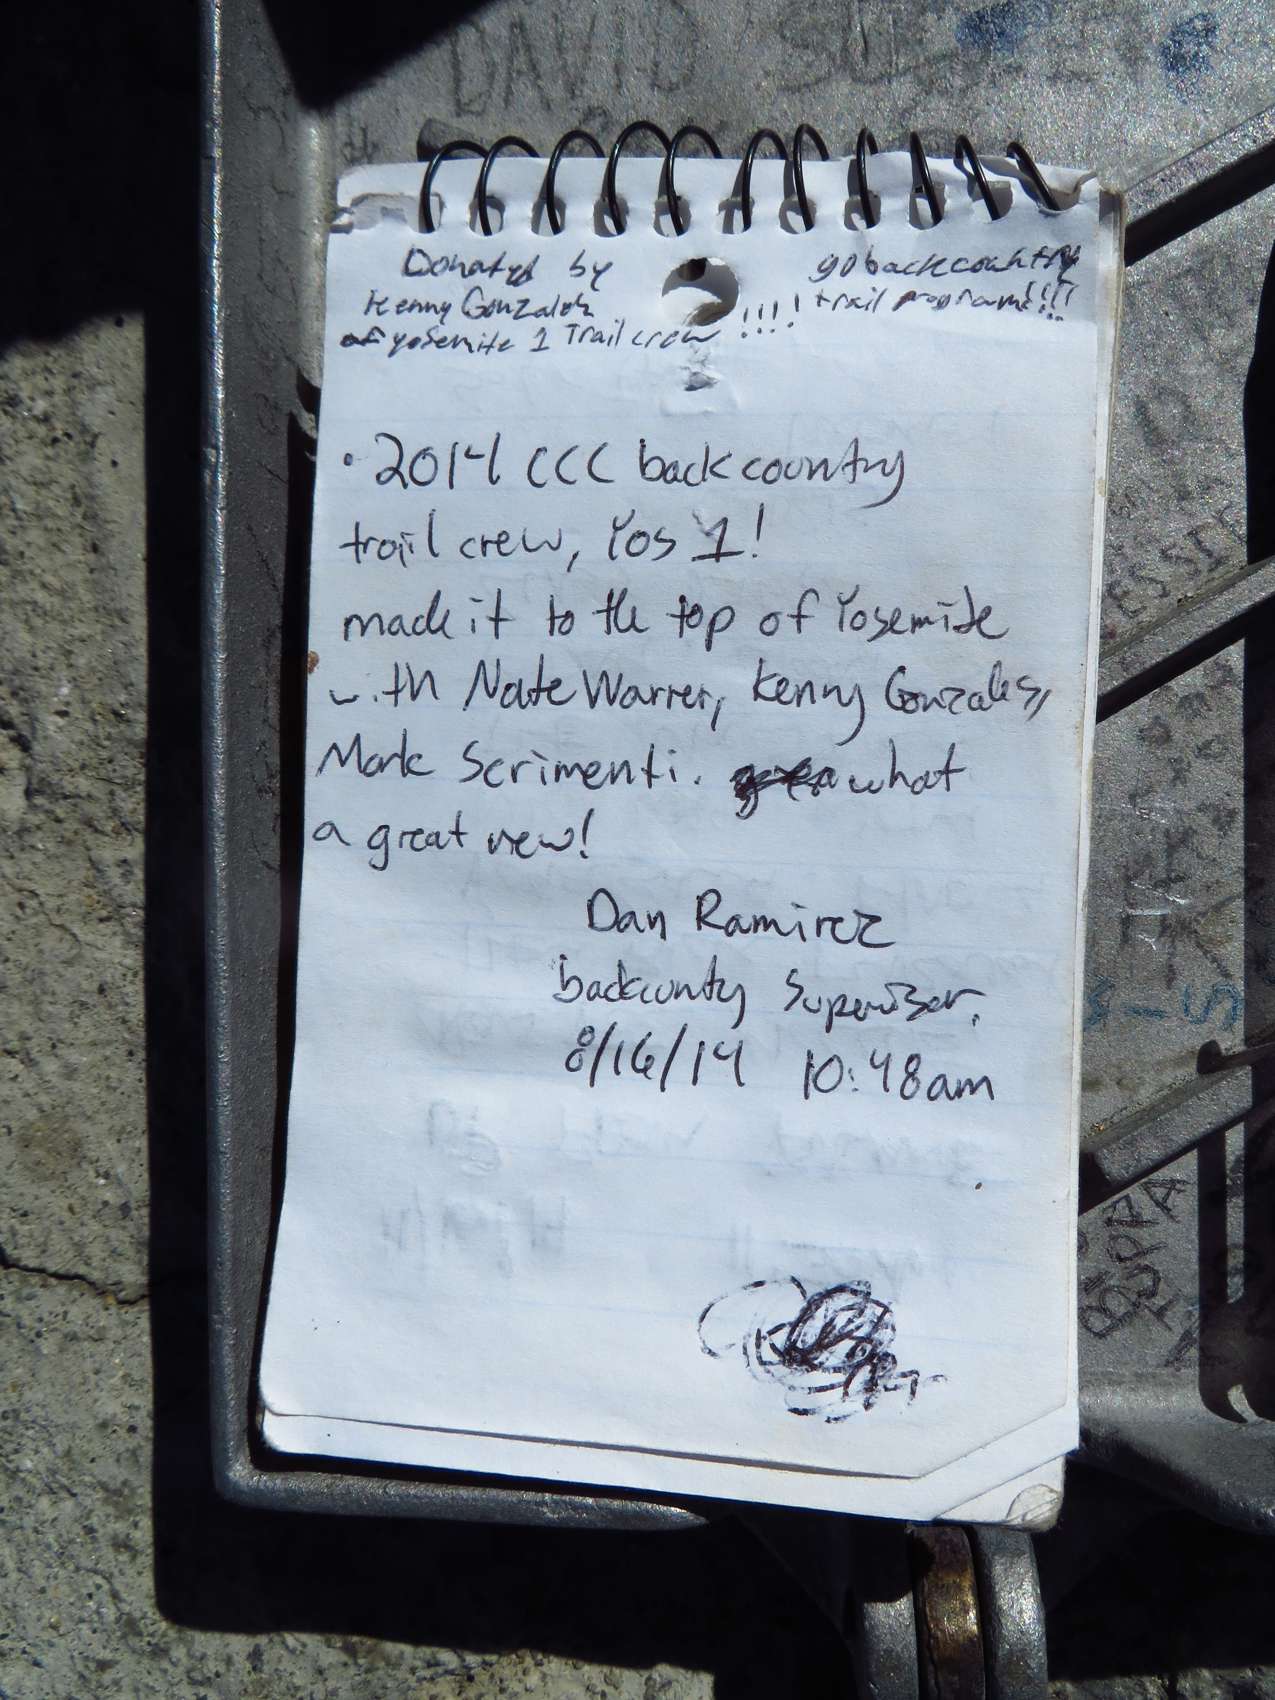 DAVID
Donated by
Kenny Gonzales
of yosemite 1 Trail crew !!!!
go backcountry
trail program!!!!
• 2014 CCC backcountry
trail crew, Yos 1!
made it to the top of Yosemite
with Nate Warrer, Kenny Gonzales,
Mark Scrimenti. what
a great view!
Dan Ramirez
backcounty Supervisor,
8/16/14 10:48am